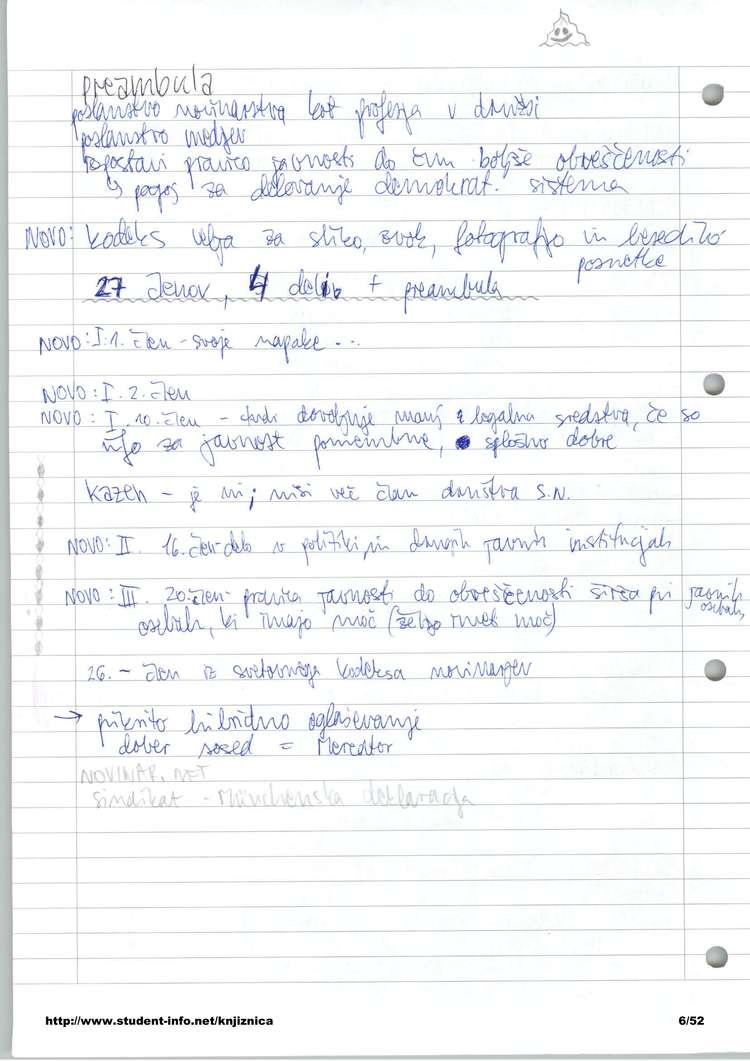 preambula
poslanstvo novinarstva kot profesija v družbi
poslanstvo medijev
izpostavi pravico javnosti do čim boljše obveščenosti
↳ pogoj za delovanje demokrat. sistema
NOVO: kodeks velja za sliko, zvok, fotografijo in besedilo
posnetke
27 členov, 4 delib + preambula
NOVO: I. 1. člen - svoje napake...
NOVO: I. 2. člen
NOVO: I. 10. člen - tudi dovoljuje manj legalna sredstva, če so
info za javnost pomembne, splošno dobre
Kazen - je ni; nisi več član društva S.N.
NOVO: II. 16. člen - delo v politiki, in drugih javnih institucijah
NOVO: III. 20. člen - pravica javnosti do obveščenosti širša pri javnih
osebah,
osebah, ki imajo moč (željo imet moč)
26. - člen iz svetovnega kodeksa novinarjev
→ prikrito hibridno oglaševanje
dober sosed = Mercator
NOVINAR.NET
Sindikat - Münchenska deklaracija
http://www.student-info.net/knjiznica
6/52